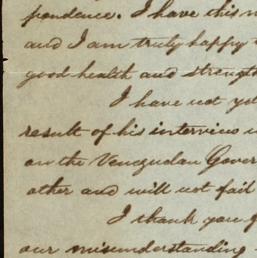 pondence. I have this m
and I am truly happy t
good health and strength
I have not ye
result of his interview w
on the Venezuelan Gover
other and will not fail
I thank you f
our misunderstanding